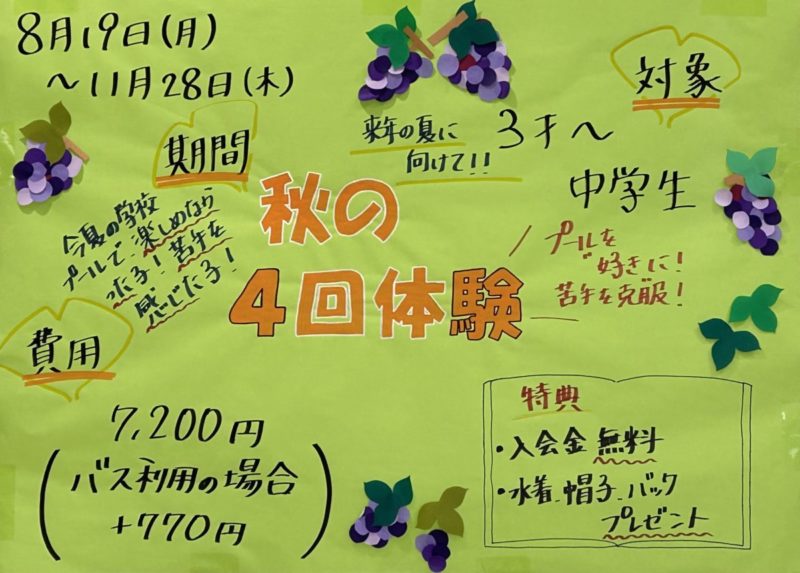 8月19日(月)
～11月28日(木)
期間
対象
3才～
中学生
来年の夏に
向けて!!
今夏の学校
プールで、楽しめなら
った子！苦手を
感じた子！
秋の
4回体験
プールを
好きに！
苦手を克服！
費用
7,200円
(バス利用の場合
+770円)
特典
・入会金 無料
・水着、帽子、バック
プレゼント